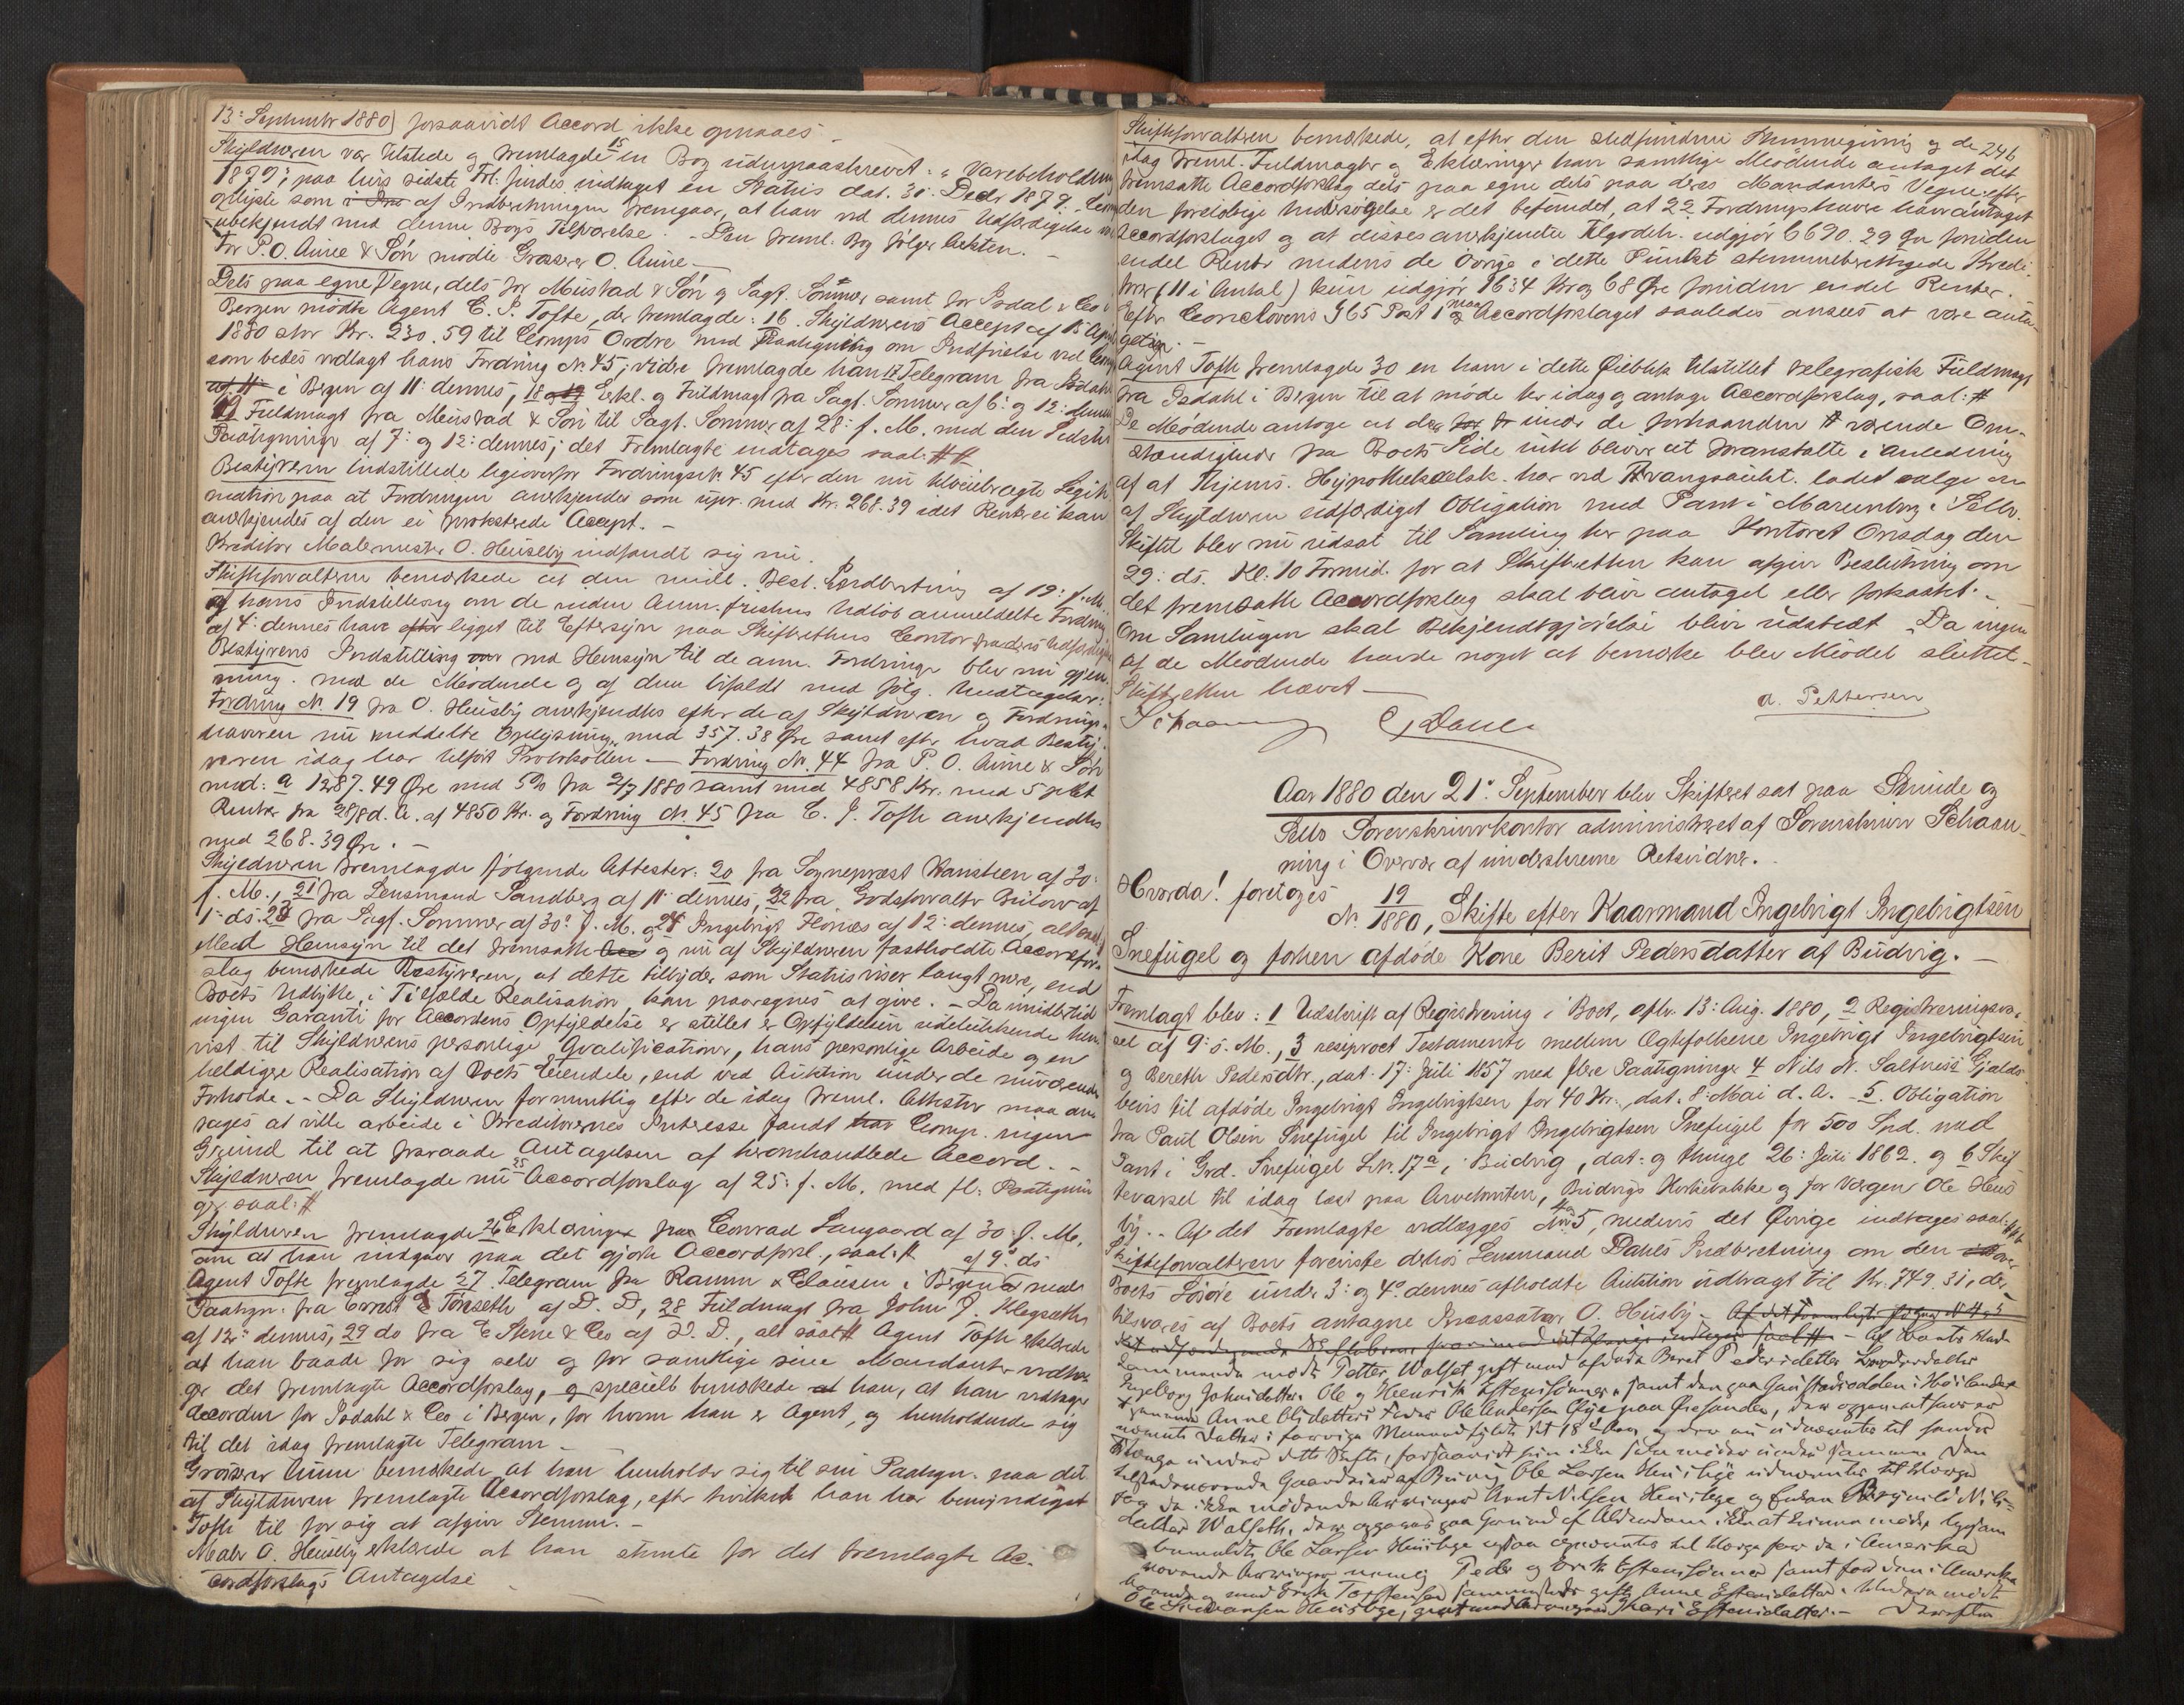 13: September 1880) forsaavidt Accord ikke opnaaes –
Skyldneren var tilstede og fremlagde 15 en Bog udenpaaskrevet: "Varebeholdning
1879", paa hvis sidste Fol. findes indtaget en Status dat. 31. Decbr 1879.
af Indberetningen fremgaar, at han ved dennes Udfærdigelse var
ubekjendt med denne Bogs Tilværelse. – Den freml. Bog følger Akten. –
For P. O. Aune & Søn mødte Grosserer O. Aune. –
Dels paa egne Vegne, dels for Mustad & Søn og Sagf. Sommer samt for Isdal & Co i
Bergen mødte Agent C. J. Tofte, der fremlagde: 16 Skyldnerens Accept af 15 April
1880 stor Kr. 230.59 til Comps Ordre med Paategning om Indfrielse ved Comp.
som bedes vedlagt hans Fordring No. 45; videre fremlagde han 17 Telegram fra Isdahl
i Bergen af 11: dennes, 18 Erkl. og Fuldmagt fra Sagf. Sommer af 6: og 12: dennes
19 Fuldmagt fra Mustad & Søn til Sagf. Sommer af 28: f. M. med den Sidstes
Paategninger af 7: og 12: dennes; det Fremlagte indtages saal: ##
Bestyreren indstillede ligeoverfor Fordringsnr. 45 efter den nu tilveiebragte Legiti-
mation paa at Fordringen anerkjendes som upr. med Kr. 268.39 idet Renter ei kan
anerkjendes af den ei protesterede Accept. –
Kreditor Malermester O. Heusby indfandt sig nu.
Skifteforvalteren bemærkede at den midl. Best. Indberetning af 19: f. M.
og hans Indstilling om de inden Anm. fristens Udløb anmeldte Fordringer
af 4: dennes have ligget til Eftersyn paa Skifterettens Contor fra deres Udfærdigelse
Bestyrerens Indstilling med Hensyn til de anm. Fordringer blev nu gjen-
nemg. med de Mødende og af dem bifaldt med følg. Undtagelser:
Fordring No. 19 fra O. Heusby anerkjendtes efter de af Skyldneren og Fordrings-
haveren nu meddelte Oplysning med 357.38 Øre samt efter hvad Besty-
reren idag har tilført Protokollen – Fordring No. 44 fra P. O. Aune & Søn
med: a 1287.49 Øre med 5% fra 2/7 1880 samt med 4858 Kr. med 5 pCt
Renter fra 28/8 d. A. af 4850 Kr. og Fordring No. 45 fra C. J. Tofte anerkjendtes
med 268.39 Øre. –
Skyldneren fremlagde følgende Attester: 20 fra Sognepræst Wansteen af 30:
f. M., 21 fra Lensmand Sandberg af 11: dennes, 22 fra Godsforvalter Bülow af
1: ds. 23 fra Sagf. Sommer af 30: f. M. og 24 Ingebrigt Flønæs af 12: dennes,
Med Hensyn til det fremsatte og nu af Skyldneren fastholdte Accordfor-
slag bemærkede Bestyreren, at dette tilbyder som Status viser langt mere, end
Boets Udbytte, i Tilfælde Realisation, kan paaregnes at give. – Da imidlertid
ingen Garanti for Accordens Opfyldelse er stillet er Opfyldelsen udelukkende hen-
vist til Skyldnerens personlige Qvalificationer, hans personlige Arbeide og en
heldigere Realisation af Boets Eiendele, end ved Auktion under de nuværende
Forholde. – Da Skyldneren formentlig efter de idag freml. Attester maa an-
tages at ville arbeide i Kreditorernes Interesse fandt Comp. ingen
Grund til at fraraade Antagelsen af heromhandlede Accord. –
Skyldneren fremlagde nu 25 Accordforslag af 25: f. M. med fl. Paategnin-
ger saal: #
Skyldneren fremlagde 26 Erklæringer fra Conrad Langaard af 30: f. M.
om at han indgaar paa det gjorte Accordforsl., saal: # af 9: ds
Agent Tofte fremlagde 27 Telegram fra Ramm & Clausen i Bergen med
Paategn. fra Ernst Tønseth af D. D, 28 Fuldmagt fra John J. Klegseth
af 12: dennes, 29 do fra E Stene & Co af D. D., alt saal # Agent Tofte erklærede
at han baade for sig selv og for samtlige sine Mandanter vedta-
ger det fremlagte Accordforslag, og specielt bemærkede han, at han vedtager
Accorden for Isdahl & Co i Bergen, for hvem han er Agent, og henholdende sig
til det idag fremlagte Telegram –
Grosserer Aune bemærkede at han henholder sig til sin Paategn. paa det
af Skyldneren fremlagte Accordforslag, efter hvilket han har bemyndiget
Tofte til for sig at afgive Stemme. –
Maler O. Heusby erklærede at han stemte for det fremlagte Ac-
cordforslags Antagelse –
246
Skifteforvalteren bemærkede, at efter den stedfundne Stemmegivning og de
idag freml. Fuldmagter og Erklæringer have samtlige Mødende antaget det
fremsatte Accordforslag dels paa egne dels paa deres Mandanters Vegne; efter
den foreløbige Undersøgelse er det befundet, at 22 Fordringshavere have antaget
Accordforslaget og at disses anerkjendte Tilgodeh. udgjør 6690.29 Øre foruden
endel Renter medens de øvrige i dette Punkt stemmeberettigede Kredi-
torer (11 i Antal) kun udgjør 1634 Kr og 68 Øre foruden endel Renter.
Efter Conclovens § 65 Post 1 maa Accordforslaget saaledes ansees at være anta-
get. –
Agent Tofte fremlagde 30 en ham i dette Øieblik tilstillet telegrafisk Fuldmagt
fra Isdahl i Bergen til at møde her idag og antage Accordforslag, saal: #
De Mødende antoge at der under de forhaanden værende Om-
stændigheder fra Boets Side intet bliver at foranstalte i Anledning
af at Thjems. Hypothekselsk. har ved Tvangsaukt. ladet sælge en
af Skyldneren udfærdiget Obligation med Pant i Marienborg i Selbo.
Skiftet blev nu udsat til Samling her paa Kontoret Onsdag den
29: ds. Kl: 10 Formid. for at Skifteretten kan afgive Beslutning om
det fremsatte Accordforslag skal blive antaget eller forkastet. –
Om Samlingen skal Bekjendtgjørelse blive udstedt – Da ingen
af de Mødende havde noget at bemærke blev Mødet sluttet –
Skifteretten hævet –
Schaanning
A. Pettersen
Aar 1880 den 21: September blev Skifteret sat paa Strinde og
Selbo Sorenskriverkontor administreret af Sorenskriver Schaan-
ning i Overvær af underskrevne Retsvidner. –
Hvorda! foretoges
No. 19/1880, Skifte efter Kaarmand Ingebrigt Ingebrigtsen
Snefugel og forhen afdøde Kone Berit Pedersdatter af Budvig. –
Fremlagt blev: 1 Udskrift af Registrering i Boet, afh. 13: Aug. 1880, 2 Registreringsvar-
sel af 9: s. M., 3 reciproct Testamente mellem Ægtefolkene Ingebrigt Ingebrigtsen
og Bereth Pedersdtr., dat. 17: Juli 1857 med flere Paategninger 4 Nils N. Saltnessi Gjelds-
bevis til afdøde Ingebrigt Ingebrigtsen for 40 Kr., dat. 8: Mai d. A. – 5. Obligation
fra Paul Olsen Snefugel til Ingebrigt Ingebrigtsen Snefugel for 500 Spd. med
Pant i Grd. Snefugel L.N. 17a, i Budvig, dat. og thingl 26: Juli 1862. og 6 Skif-
tevarsel til idag læst paa Arvetomten, Budvigs Kirkebakke og for Værgen Ole Heus-
by. – Af det Fremlagte vedlægges No 5, medens det Øvrige indtages saal:
Skifteforvalteren foreviste derhos Lensmand Dahls Indberetning om den over
Boets Løsøre under 3: og 4: dennes afholdte Auktion udbragt til Kr. 749.31, der
tilsvares af Boets antagne Incassator O. Husby. –
mødte Petter Walset gift med afdøde Beret Pedersdatters
Ingeborg Johnsdatter, Ole og Henrik Estensønner, samt den paa i Høilandet
Anne Olsdatters Fader Ole Andersen Øye paa
Datter i forrige 18de Aar og
under dette Skifte, forsaavidt hun ikke
Gaardeier af Ole Larsen Heusbye udnævntes til Værge
da ikke mødende Arvinger Arnt Nilsen Heusbye og Enken Nils-
datter Walseth, der opgaves paa Grund af Alderdom ikke at kunne møde, ligesom
Ole Larsen Heusbye ogsaa opnævntes til Værge for de i Amerika
værende Arvinger nemlig Peder og Erik Estensønner samt for den i Amerika
og med Erik Torstensen gifte Anne Estensdatter. mødte
Ole Heusbye, gift med Arvingen Mari Estensdatter. – Derefter